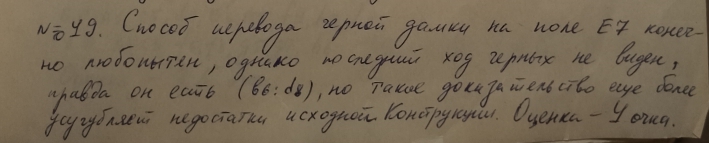 №19. Способ перевода черной дамки на поле E7 конеч-
но любопытен, однако последний ход черных не виден,
правда он есть (b6:d8), но такое доказательство еще более
усугубляет недостатки исходной Конструкции. Оценка – 4 очка.